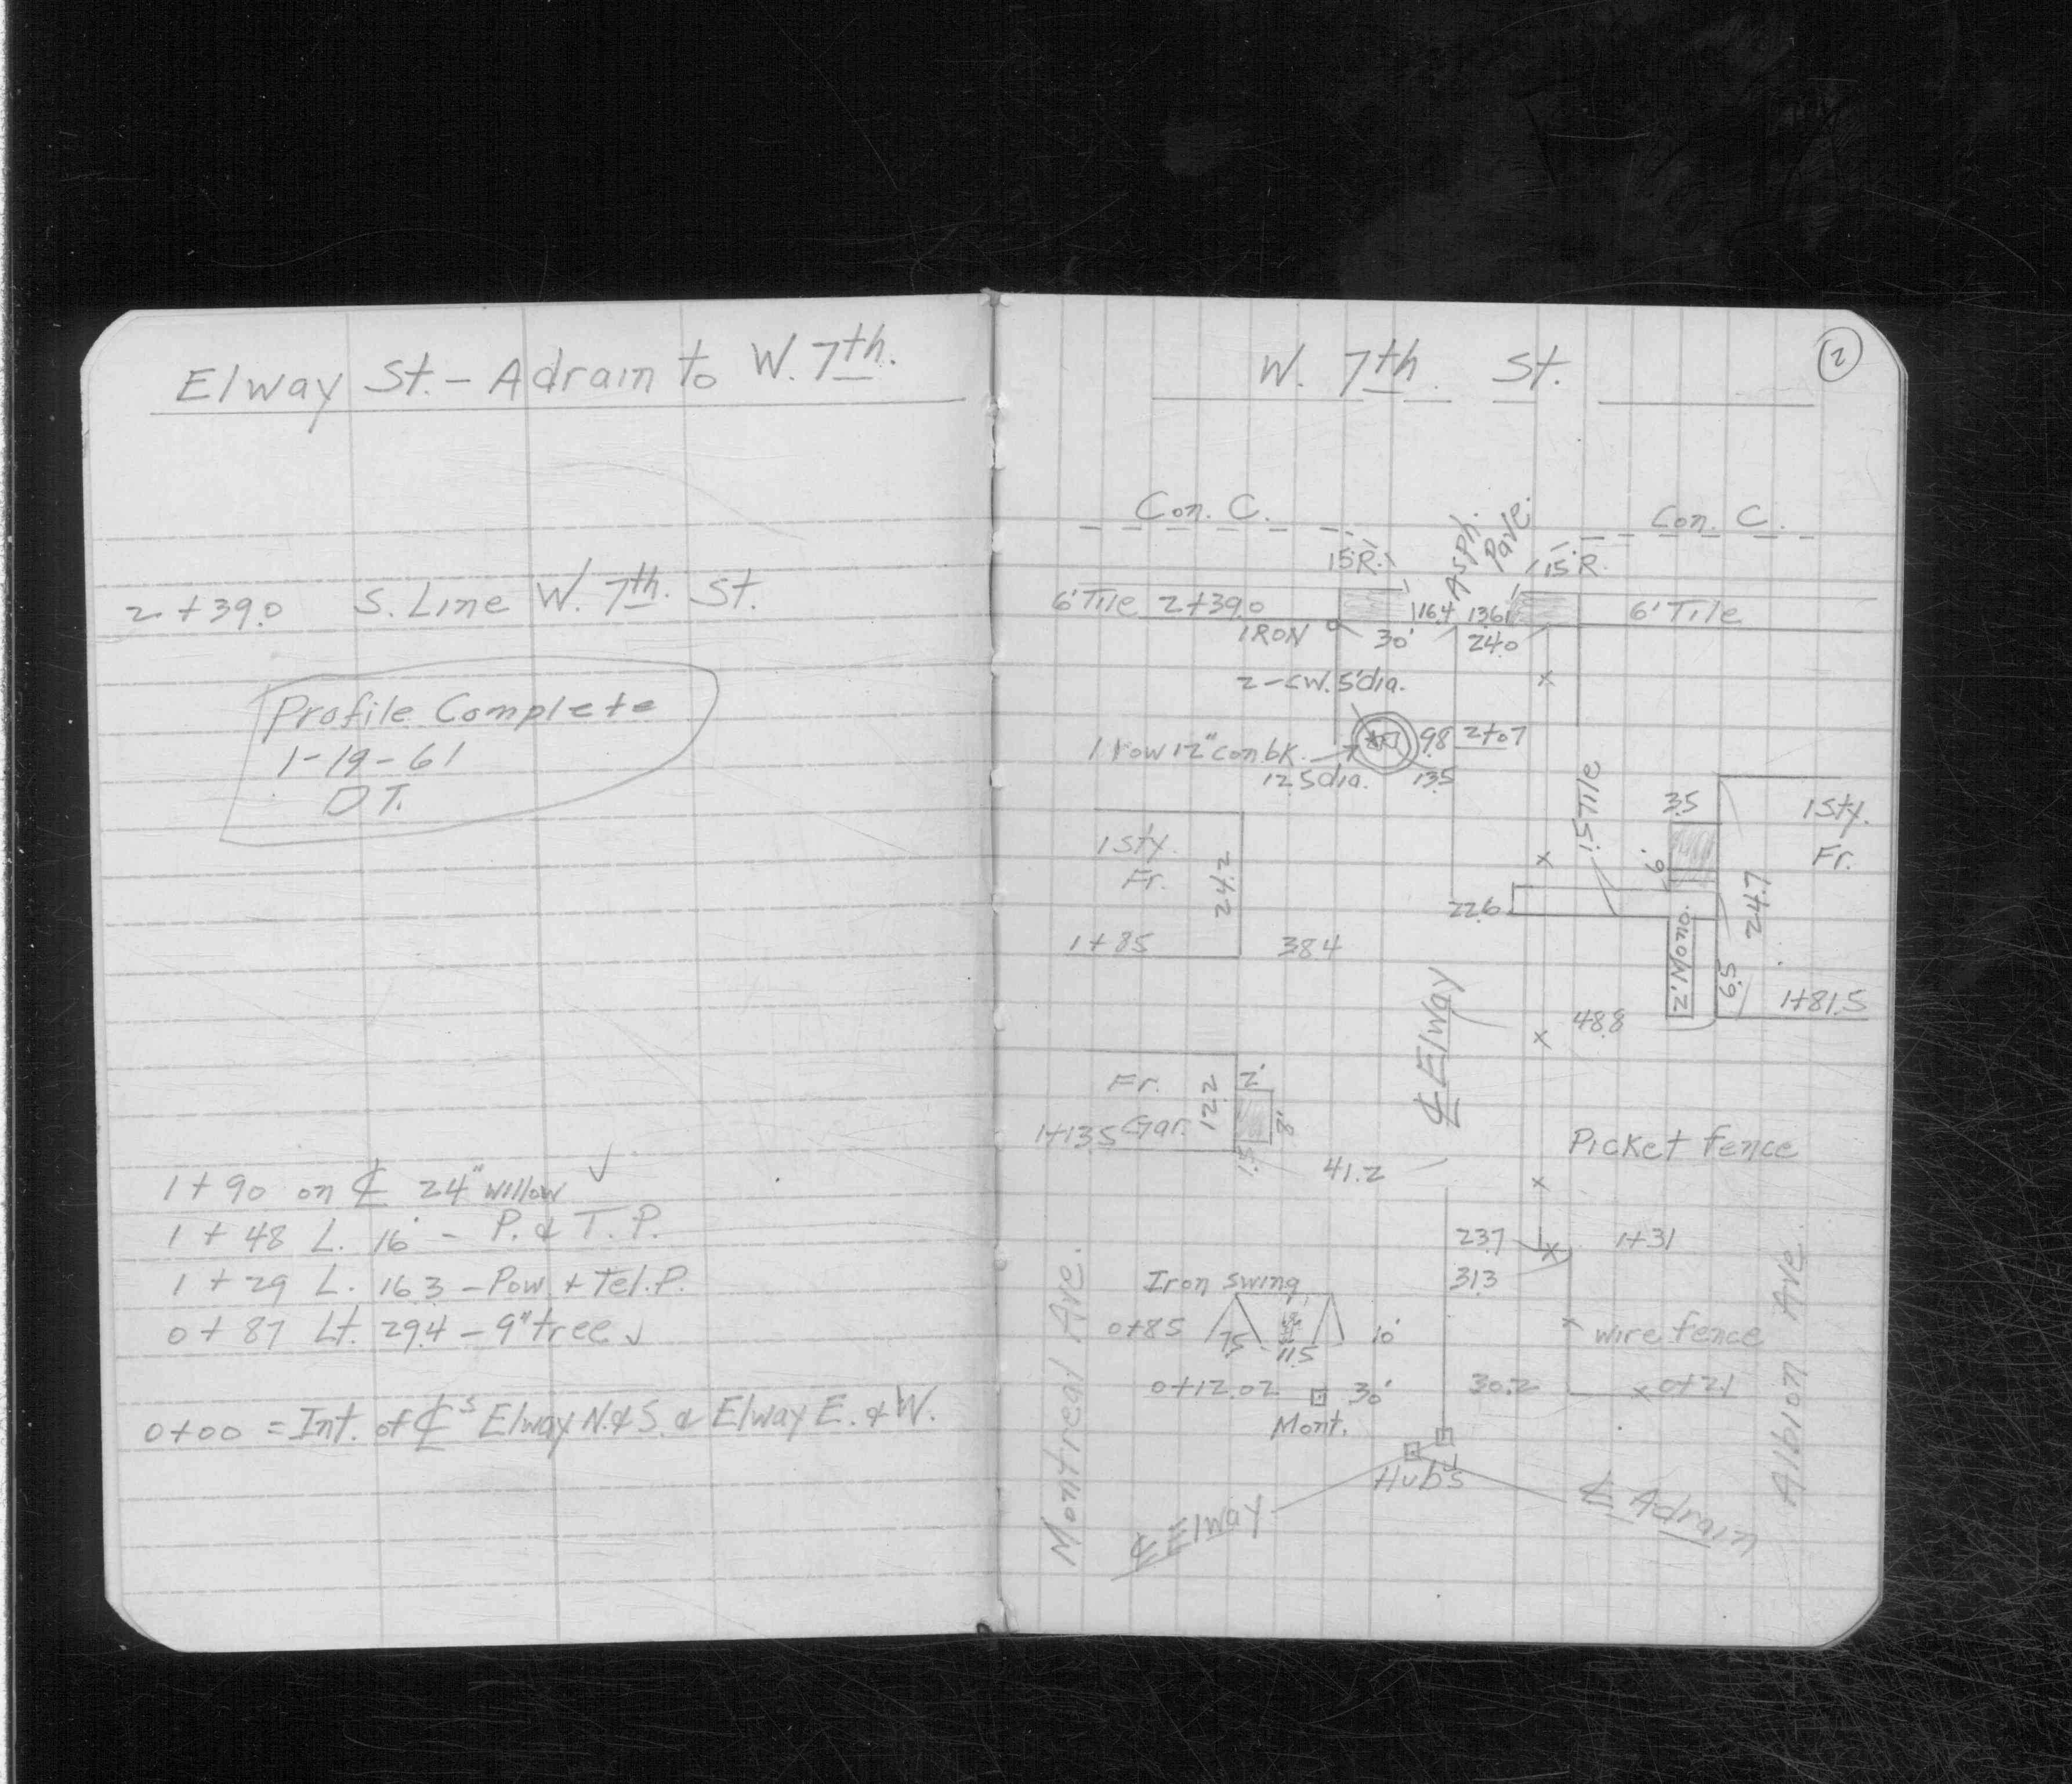 Elway St. - Adrain to W. 7th.
2+39.0 S. Line W. 7th. St.
Profile Complete
1-19-61
D T.
1+90 on ℄ 24" willow ✓
1+48 L. 16' - P. & T. P.
1+29 L. 16.3 - Pow. + Tel. P.
0+87 Lt. 29.4 - 9" tree ✓
0+00 = Int. of ℄s Elway N. & S. & Elway E. & W.
2
W. 7th. St.
Con. C.
Asph. Pave.
Con. C.
15'R.
15'R.
6' Tile 2+39.0
16.4 13.6
6' Tile
IRON
30'
24.0
2-cw. 5'dia.
1 row 12" con bk.
9.8 2+07
12.5 dia.
13.5
1 Sty.
Fr.
24.2
1+85
38.4
1.5 Tile
3.5
6'
1 Sty.
Fr.
24.7
22.6
2' Mono.
6.5
1+81.5
48.8
℄ Elway
Fr.
Gar.
12.2
2'
8'
1+13.5
1.5
41.2
Picket fence
23.7
1+31
31.3
Iron swing
0+85
7.5
11.5
10'
wire fence
0+12.02
30'
Mont.
30.2
0+21
Hubs
℄ Elway
℄ Adrain
Montreal Ave.
Albion Ave.